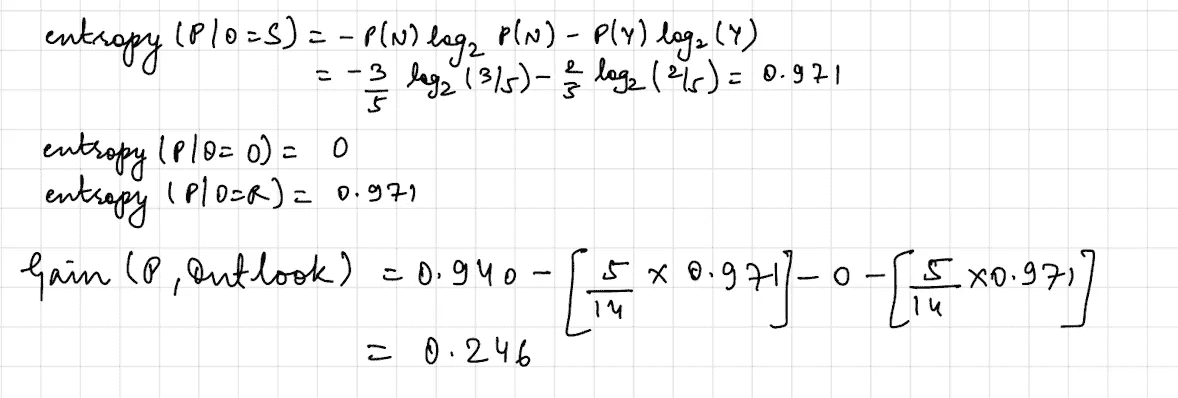 entropy (P|O=S) = - P(N) log₂ P(N) - P(Y) log₂ (Y)
= - 3/5 log₂ (3/5) - 2/5 log₂ (2/5) = 0.971
entropy (P|O= O) = 0
entropy (P|O=R) = 0.971
Gain (P, Outlook) = 0.940 - [5/14 × 0.971] - 0 - [5/14 × 0.971]
= 0.246